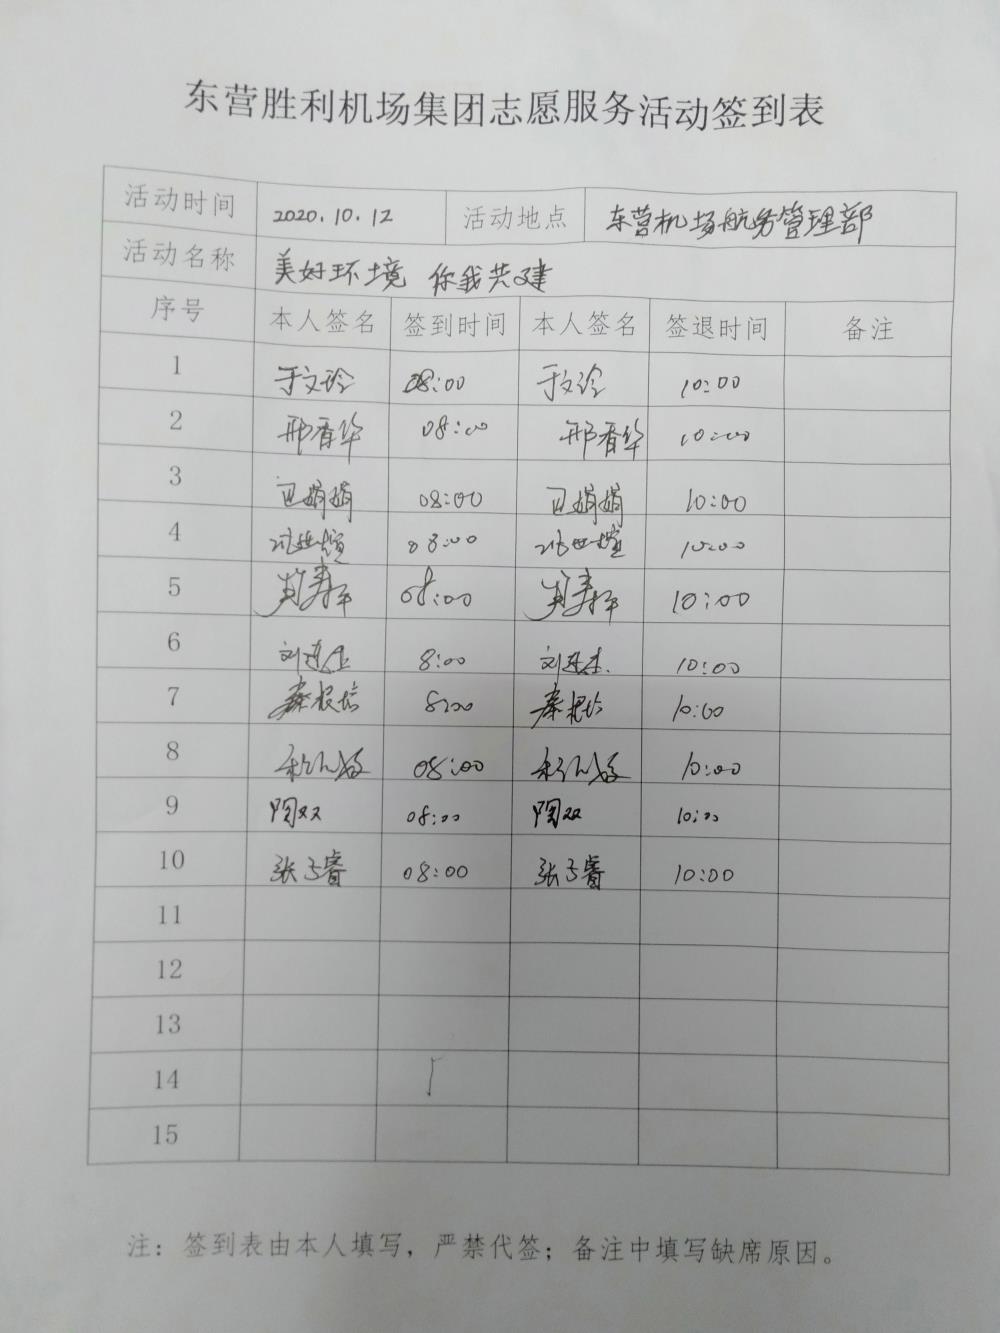 东营胜利机场集团志愿服务活动签到表
活动时间 2020.10.12 活动地点 东营机场航务管理部
活动名称 美好环境 你我共建
序号 本人签名 签到时间 本人签名 签退时间 备注
1 于文玲 08:00 于文玲 10:00
2 邢香华 08:00 邢香华 10:00
3 娟娟 08:00 娟娟 10:00
4 08:00 10:00
5 08:00 10:00
6 刘 8:00 刘 10:00
7 秦根培 8:00 秦根培 10:00
8 08:00 10:00
9 陶双 08:00 陶双 10:00
10 张子睿 08:00 张子睿 10:00
11
12
13
14
15
注：签到表由本人填写，严禁代签；备注中填写缺席原因。